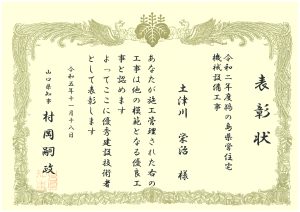 表彰状
令和二年度鶴の島県営住宅
機械設備工事
土津川 栄治 様
あなたが施工管理された右の
工事は他の模範となる優良工
事と認めます
よってここに優秀建設技術者
として表彰します
令和五年十一月十八日
山口県知事 村岡嗣政